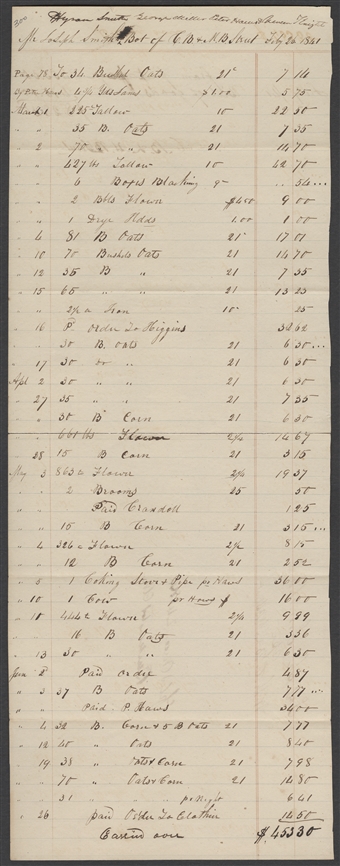 Hyrum Smith George Miller Peter Haws &
Mr Joseph Smith Bot of C. B & N. B. Street Feby 26 1841
Page 78 To 34 Bushel Oats 21 7 14
By Peter Haws 5 75
March 1 225 Tallow 10 22 50
" " 35 B. Oats 21 7 35
" 2 70 " " 21 14 70
" " 427 lbs Tallow 10 42 70
" " 6 Boxes Blacking 9 54
" " 2 Bbls Flower $4.50 9 00
" " 1 1.00 1 00
" 4 81 B Oats 21 17 01
" 10 70 Bushels Oats 21 14 70
" 12 35 B " 21 7 35
" 15 65 " " 21
" " Iron 10 25
" 16 P. order To Higgins 34 62
" " 30 B. oats 21 6 30
" 17 30 do " 21 6 30
Apl 2 30 " " 21 6 30
" 27 35 " " 21 7 35
" " 30 B Corn 21 6 30
" " 661 lbs Flower 2¼
" 28 15 B Corn 21 3 15
May 3 Flower 2¼ 19 37
" " 2 Brooms 25 50
" " Paid Crandoll 1 25
" " 15 B Corn 21 3 15
" 4 326 " Flower 2½ 8 15
" " 12 B Corn 21 2 52
" 5 1 Coking Stove & Pipe pr Haws 36 00
" 10 1 Cow pr Haws $ 16 00
" 10 444 " Flower 2¼ 9 99
" " 16 B Oats 21 3 36
" 13 30 " " 21 6 30
June 2 Paid order 4 87
" 3 37 B Oats 7 77
" " Paid P. Haws 34 00
" 4 32 B. Corn & 5 B Oats 21 7 77
" 12 40 " Oats 21 8 40
" 19 38 " Oats & Corn 21 7 98
" " 70 " Oats & Corn 21
" " 31 " " pr Night 6 41
" 26 paid Order To Clothier 14 50
Carried over $ 453 30